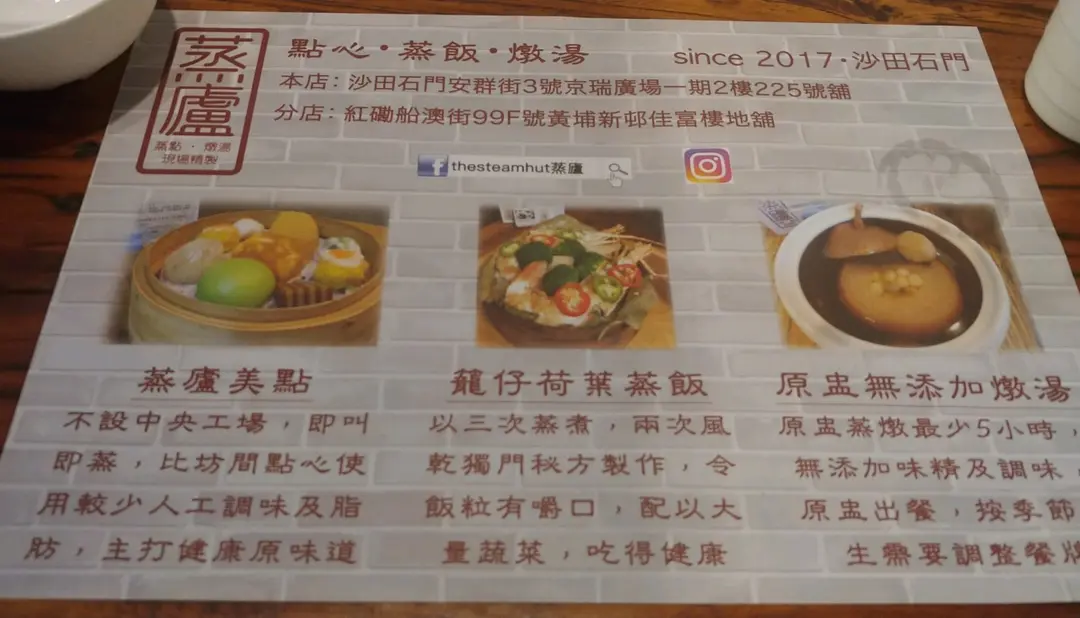 蒸廬
蒸點・燉湯
現場精製
點心・蒸飯・燉湯
since 2017・沙田石門
本店：沙田石門安群街3號京瑞廣場一期2樓225號舖
分店：紅磡船澳街99F號黃埔新邨佳富樓地舖
thesteamhut蒸廬
蒸廬美點
不設中央工場，即叫
即蒸，比坊間點心使
用較少人工調味及脂
肪，主打健康原味道
籠仔荷葉蒸飯
以三次蒸煮，兩次風
乾獨門秘方製作，令
飯粒有嚼口，配以大
量蔬菜，吃得健康
原盅無添加燉湯
原盅蒸燉最少5小時，
無添加味精及調味，
原盅出餐，按季節
生需要調整餐牌